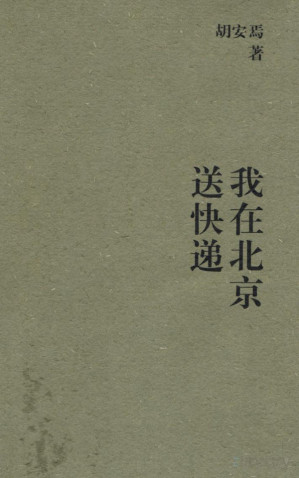 胡安焉
著
我在北京
送快递